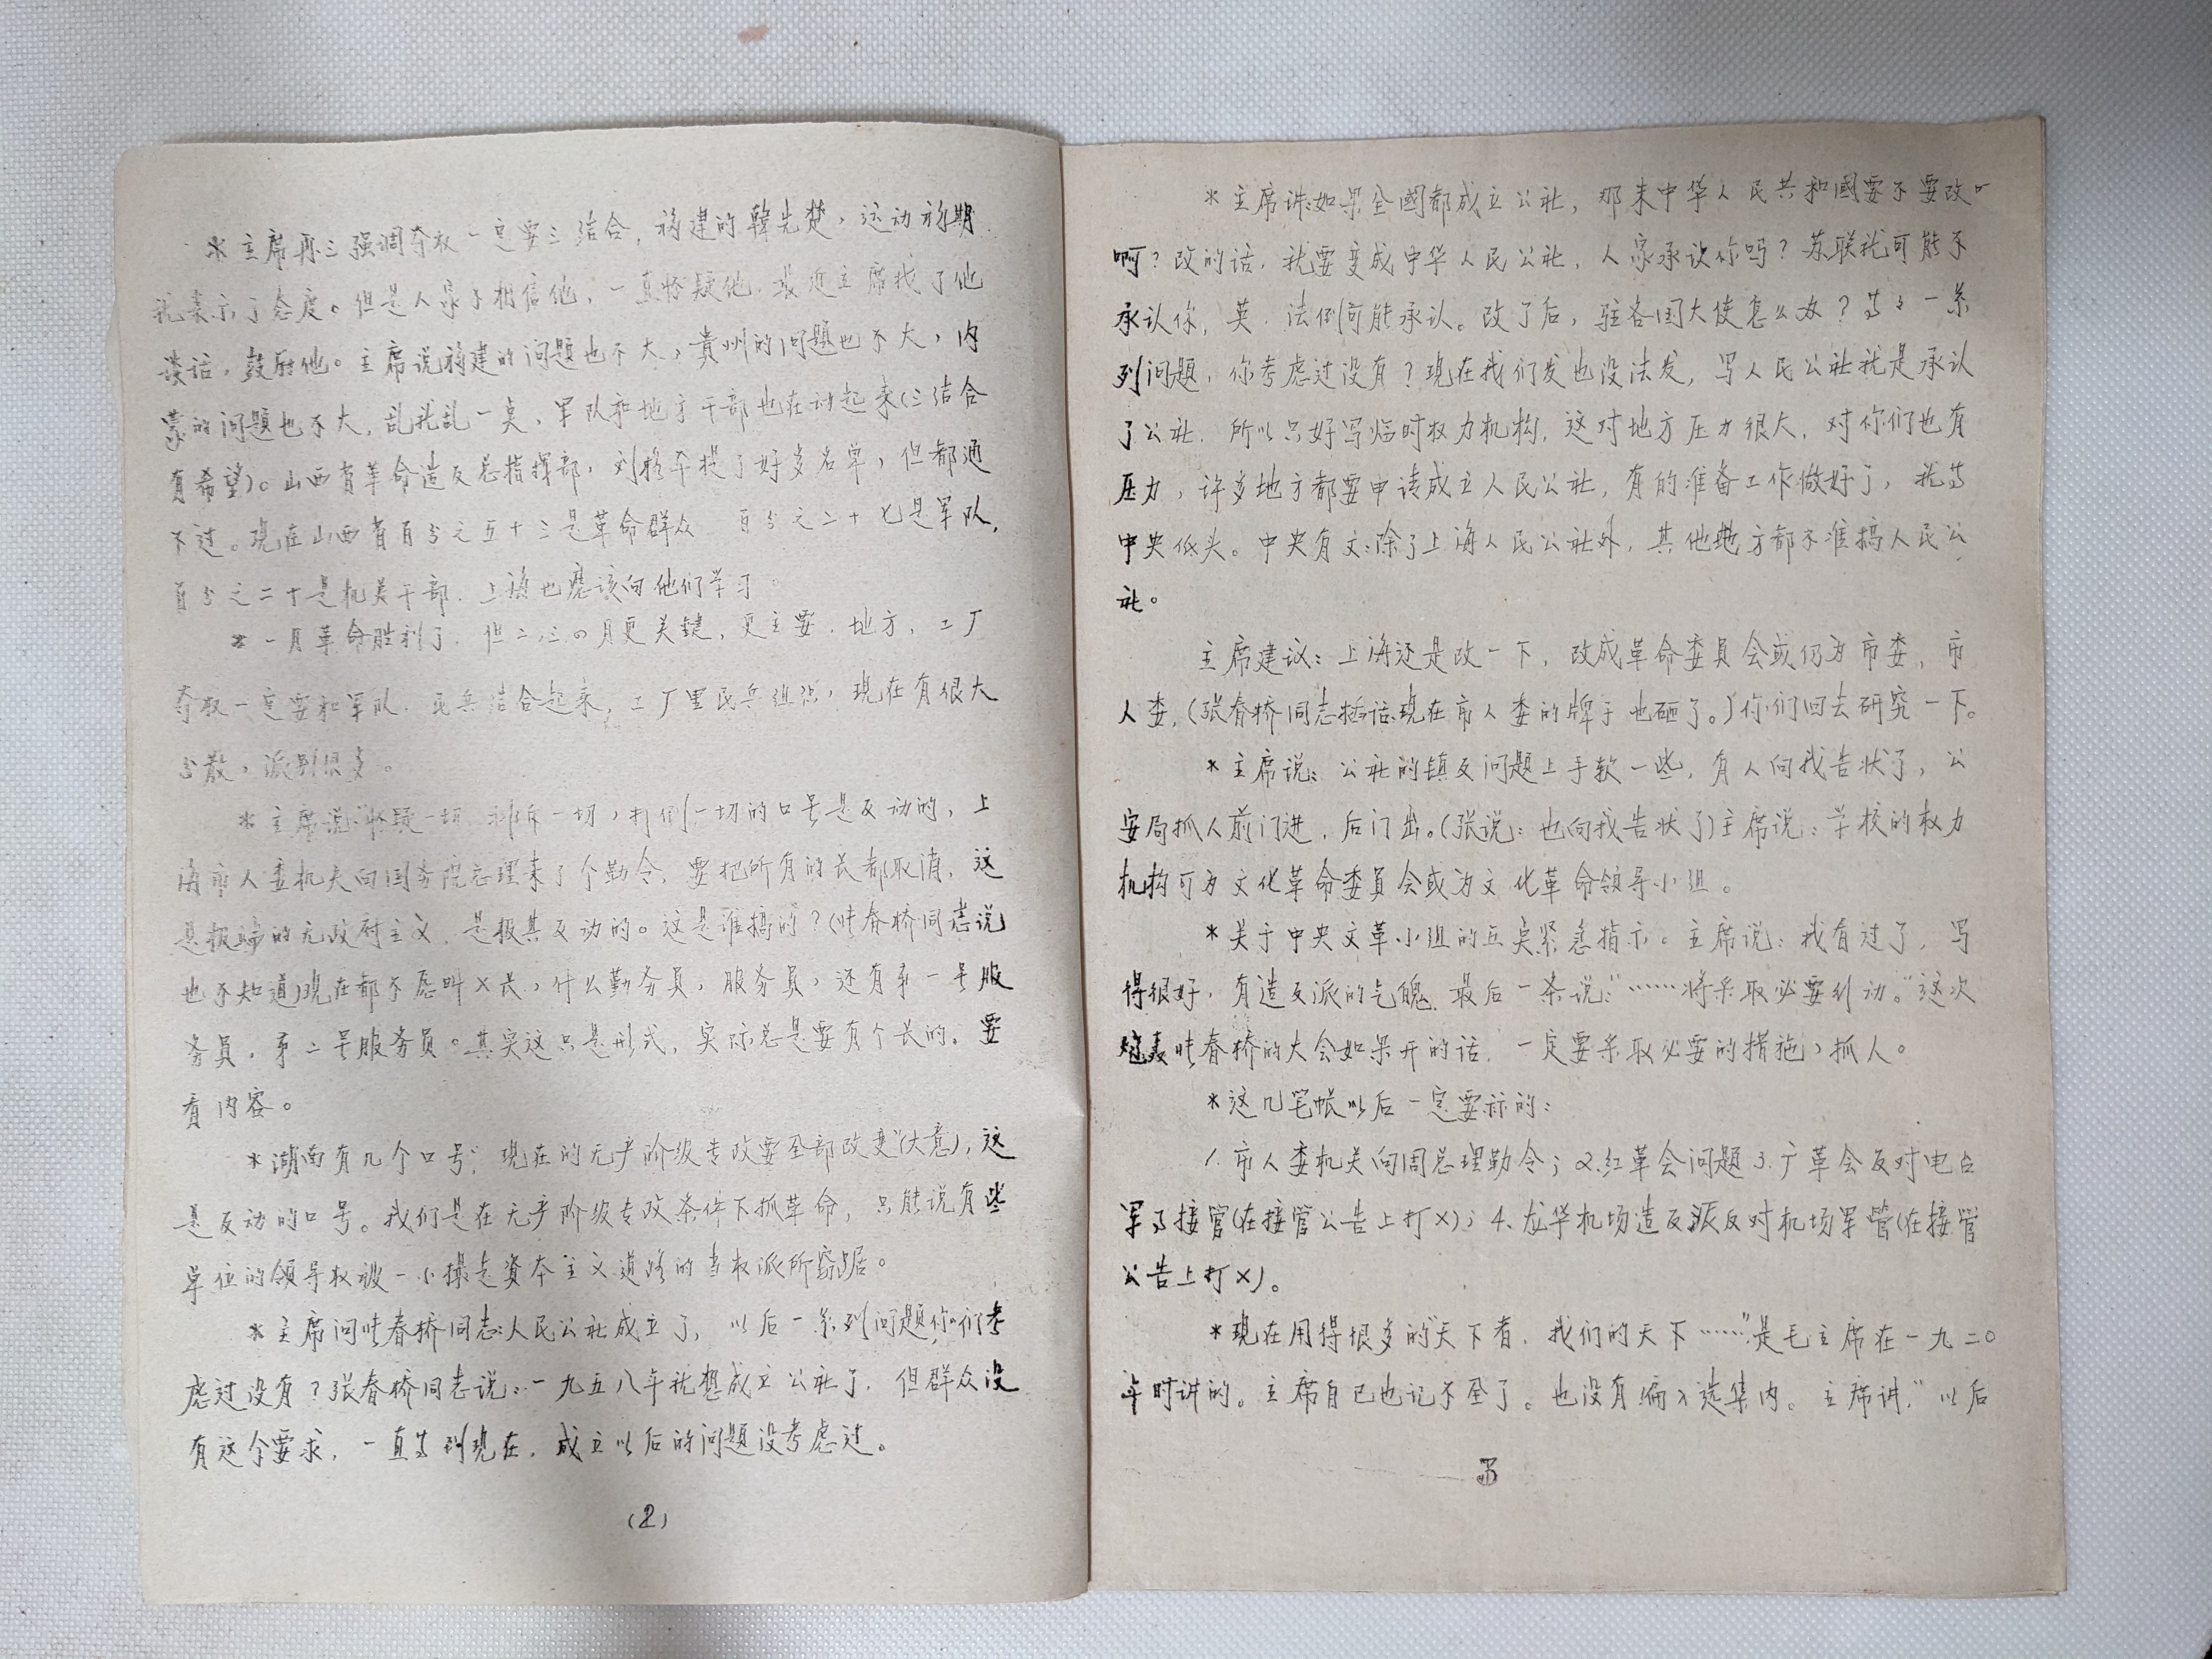 *主席再三强调夺权一定要三结合，福建的韓先楚，运动初期
就表示了态度。但是人家不相信他，一直怀疑他，最近主席找了他
谈话，鼓励他。主席说福建的问题也不大，貴州的问题也不大，内
蒙的问题也不大，乱就乱一点，军队和地方干部也在动起来（三结合
有希望）。山西有革命造反总指挥部，刘格平提了好多名单，但都通
不过。现在山西省百分之五十三是革命群众，百分之二十七是军队，
百分之二十是机关干部，上海也应该向他们学习。
*一月革命胜利了，但二、三、四月更关键，更主要，地方、工厂
夺取一定要和军队、民兵结合起来，工厂里民兵组织，现在有很大
分散，派别很多。
*主席说：怀疑一切，打倒一切的口号是反动的，上
海市人委机关向国务院总理来了个勒令，要把所有的长都取消，这
是极端的无政府主义，是极其反动的。这是谁搞的？（张春桥同志说
也不知道）现在都不愿叫×长，什么勤务员，服务员，还有第一号服
务员，第二号服务员。其实这只是形式，实际总是要有个长的，要
看内容。
*湖南有几个口号“现在的无产阶级专政要全部改变”（大意），这
是反动的口号。我们是在无产阶级专政条件下抓革命，只能说有些
单位的领导权被一小撮走資本主义道路的当权派所窃踞。
*主席问张春桥同志：人民公社成立了，以后一系列问题你们考
虑过没有？张春桥同志说：一九五八年就想成立公社了，但群众没
有这个要求，一直等到现在，成立以后的问题没考虑过。
（2）
*主席讲：如果全國都成立公社，那末中华人民共和國要不要改
啊？改的话，就要变成中华人民公社，人家承认你吗？苏联就可能不
承认你，英、法倒可能承认。改了后，驻各国大使怎么办？等等一系
列问题，你考虑过没有？现在我们发也没法发，写人民公社就是承认
了公社，所以只好写临时权力机构，这对地方压力很大，对你们也有
压力，许多地方都要申请成立人民公社，有的准备工作做好了，就等
中央低头。中央有文：除了上海人民公社外，其他地方都不准搞人民公
社。
主席建议：上海还是改一下，改成革命委員会或仍为市委、市
人委，（张春桥同志插话：现在市人委的牌子也砸了。）你们回去研究一下。
*主席说：公社的镇反问题上手软一些，有人向我告状了，公
安局抓人前门进，后门出。（张说：也向我告状了）主席说：学校的权力
机构可为文化革命委員会或为文化革命领导小组。
*关于中央文革小组的五点紧急指示。主席说：我看过了，写
得很好，有造反派的气魄，最后一条说：“……将采取必要行动。”这次
张春桥的大会如果开的话，一定要采取必要的措施，抓人。
*这几笔帐以后一定要标的：
1.市人委机关向周总理勒令；2.红革会问题3.广革会反对电台
军事接管（在接管公告上打×）；4、龙华机场造反派反对机场军管（在接管
公告上打×）。
*现在用得很多的“天下者，我们的天下……”是毛主席在一九二〇
年时讲的。主席自己也记不全了。也没有编入选集内。主席讲，“以后
3